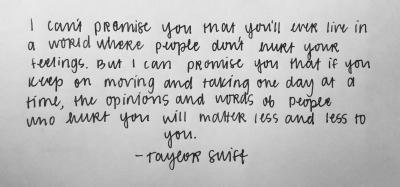 I can't promise you that you'll ever live in
a world where people don't hurt your
feelings. But I can promise you that if you
keep on moving and taking one day at a
time, the opinions and words of people
who hurt you will matter less and less to
you.
-Taylor Swift